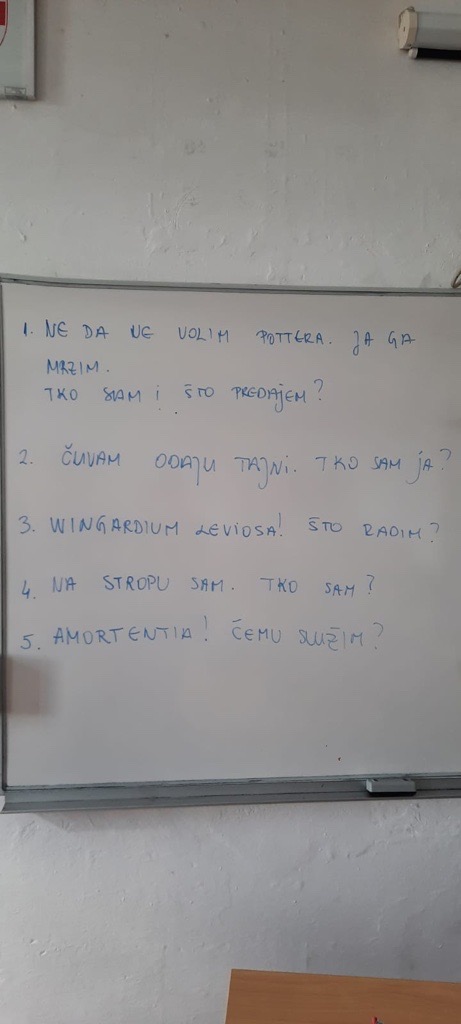 1. NE DA NE VOLIM POTTERA. JA GA
MRZIM.
TKO SAM I ŠTO PREDAJEM?
2. ČUVAM ODAJU TAJNI. TKO SAM JA?
3. WINGARDIUM LEVIOSA! ŠTO RADIM?
4. NA STROPU SAM. TKO SAM?
5. AMORTENTIA! ČEMU SLUŽIM?